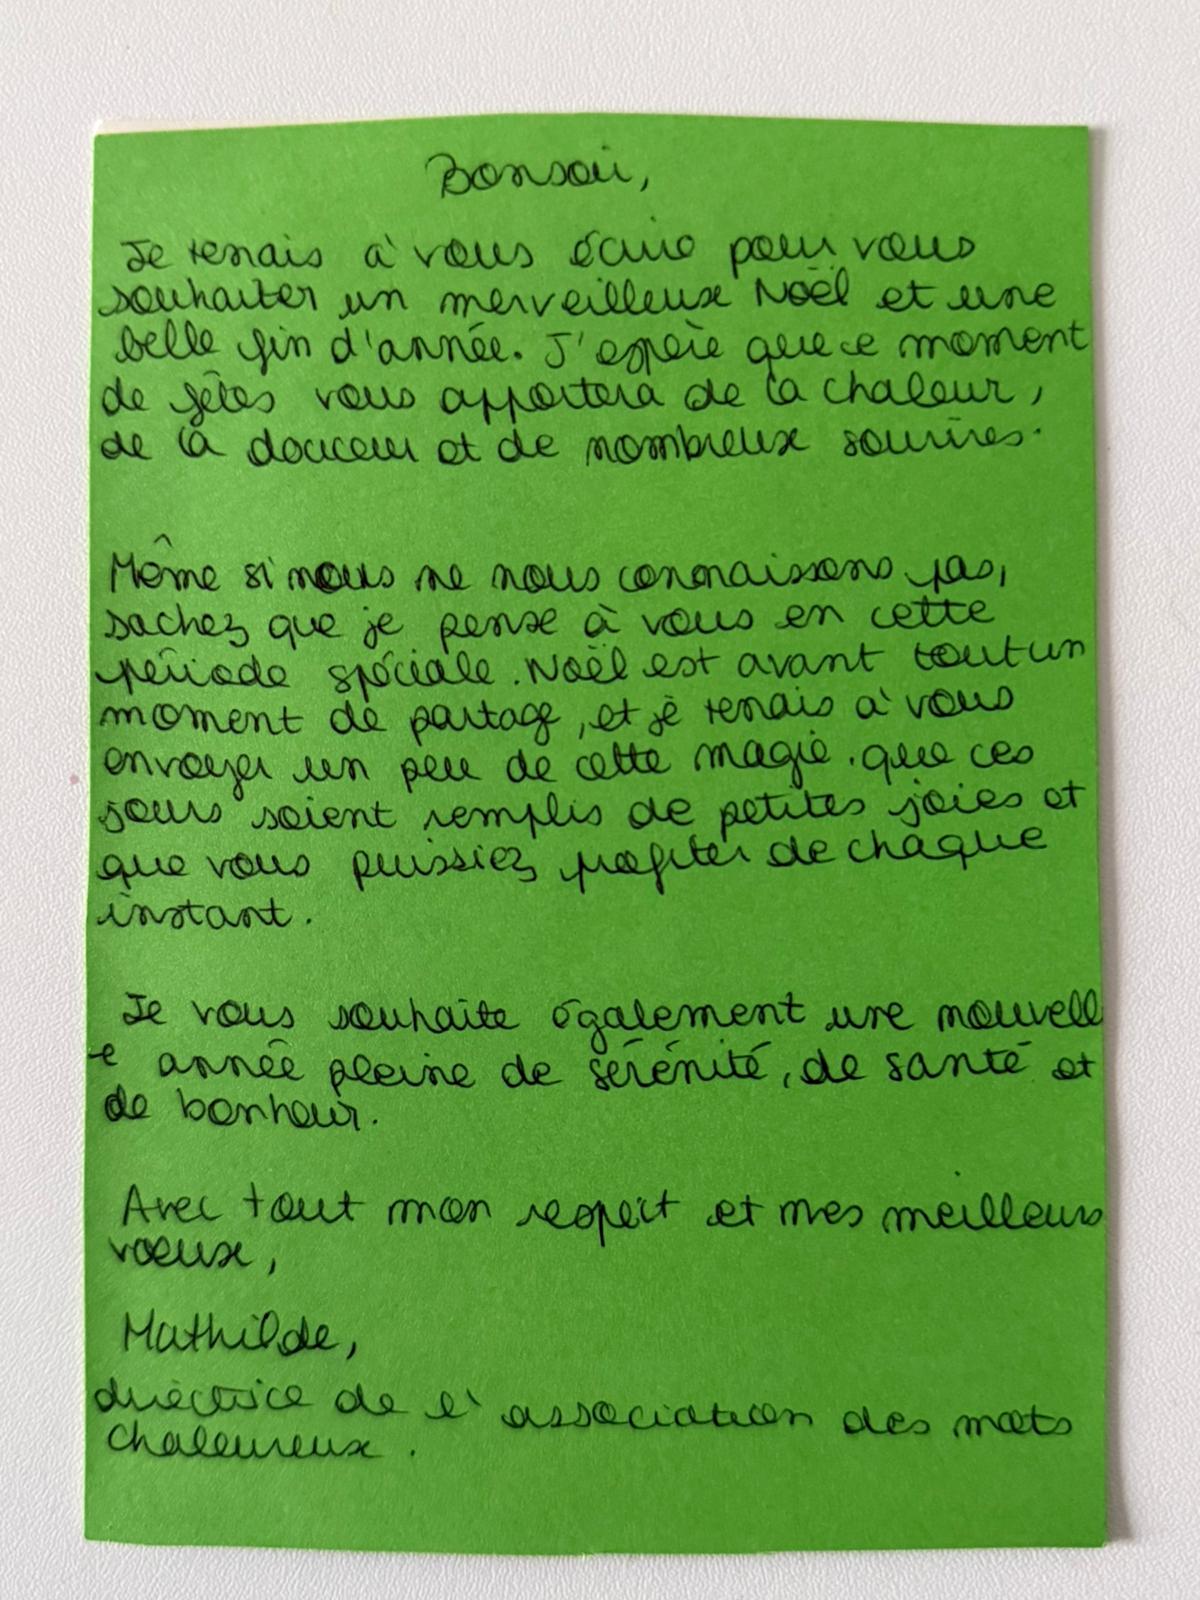 Bonsoir,
Je tenais à vous écrire pour vous
souhaiter un merveilleux Noël et une
belle fin d'année. J'espère que ce moment
de fêtes vous apportera de la chaleur,
de la douceur et de nombreux sourires.
Même si nous ne nous connaissons pas,
sachez que je pense à vous en cette
période spéciale. Noël est avant tout un
moment de partage, et je tenais à vous
envoyer un peu de cette magie. que ces
jours soient remplis de petites joies et
que vous puissiez profiter de chaque
instant.
Je vous souhaite également une nouvell
e année pleine de sérénité, de santé et
de bonheur.
Avec tout mon respect et mes meilleurs
vœux,
Mathilde,
directrice de l'association des mots
chaleureux.